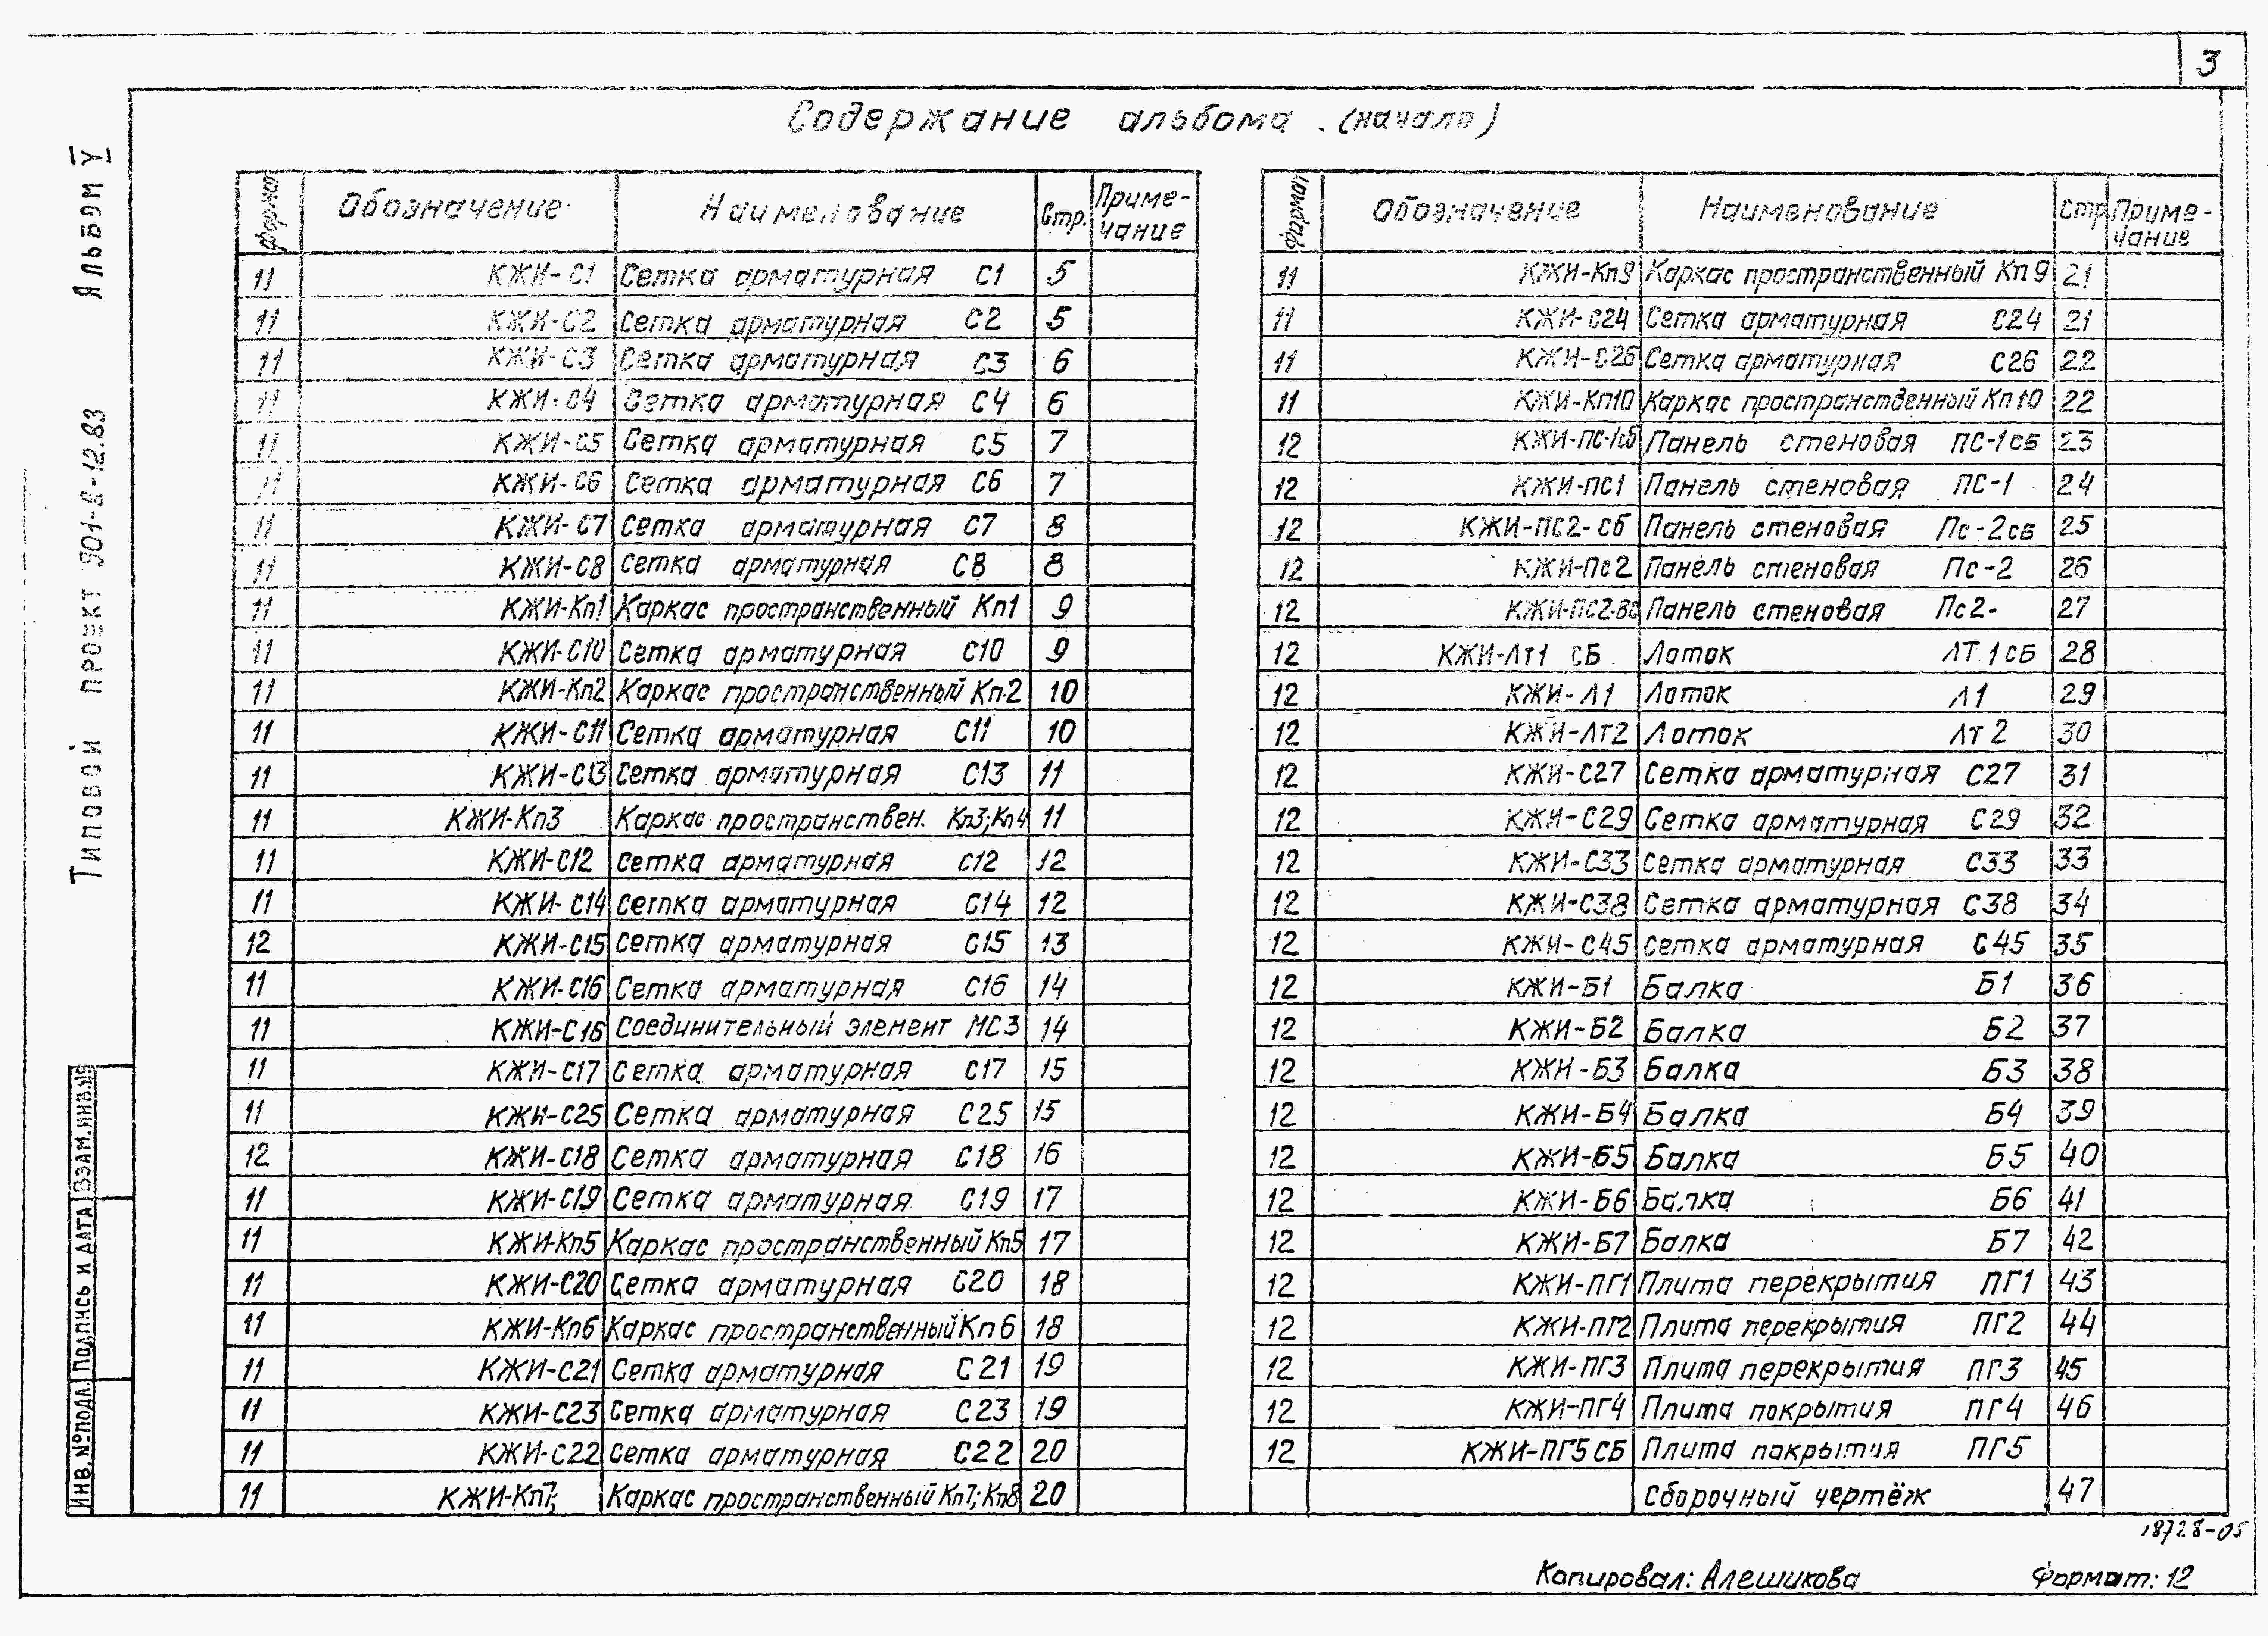 3
Содержание альбома (начало)
Альбом V
Типовой проект 901-8-12.83
Формат Обозначение Наименование Стр. Приме-чание
11 КЖИ-С1 Сетка арматурная С1 5
11 КЖИ-С2 Сетка арматурная С2 5
11 КЖИ-С3 Сетка арматурная С3 6
11 КЖИ-С4 Сетка арматурная С4 6
11 КЖИ-С5 Сетка арматурная С5 7
11 КЖИ-С6 Сетка арматурная С6 7
11 КЖИ-С7 Сетка арматурная С7 8
11 КЖИ-С8 Сетка арматурная С8 8
11 КЖИ-Кп1 Каркас пространственный Кп1 9
11 КЖИ-С10 Сетка арматурная С10 9
11 КЖИ-Кп2 Каркас пространственный Кп-2 10
11 КЖИ-С11 Сетка арматурная С11 10
11 КЖИ-С13 Сетка арматурная С13 11
11 КЖИ-Кп3 Каркас пространствен. Кп3;Кп4 11
11 КЖИ-С12 Сетка арматурная С12 12
11 КЖИ-С14 Сетка арматурная С14 12
12 КЖИ-С15 Сетка арматурная С15 13
11 КЖИ-С16 Сетка арматурная С16 14
11 КЖИ-С16 Соединительный элемент МС3 14
11 КЖИ-С17 Сетка арматурная С17 15
11 КЖИ-С25 Сетка арматурная С25 15
12 КЖИ-С18 Сетка арматурная С18 16
11 КЖИ-С19 Сетка арматурная С19 17
11 КЖИ-Кп5 Каркас пространственный Кп5 17
11 КЖИ-С20 Сетка арматурная С20 18
11 КЖИ-Кп6 Каркас пространственный Кп6 18
11 КЖИ-С21 Сетка арматурная С21 19
11 КЖИ-С23 Сетка арматурная С23 19
11 КЖИ-С22 Сетка арматурная С22 20
11 КЖИ-Кп7; Каркас пространственный Кп7;Кп8 20
Формат Обозначение Наименование Стр Приме-чание
11 КЖИ-Кп9 Каркас пространственный Кп9 21
11 КЖИ-С24 Сетка арматурная С24 21
11 КЖИ-С26 Сетка арматурная С26 22
11 КЖИ-Кп10 Каркас пространственный Кп10 22
12 КЖИ-ПС-1сб Панель стеновая ПС-1сБ 23
12 КЖИ-ПС1 Панель стеновая ПС-1 24
12 КЖИ-ПС2-Сб Панель стеновая Пс-2сБ 25
12 КЖИ-Пс2 Панель стеновая Пс-2 26
12 Панель стеновая Пс2- 27
12 КЖИ-Лт1 СБ Лоток ЛТ1сБ 28
12 КЖИ-Л1 Лоток Л1 29
12 КЖИ-Лт2 Лоток Лт2 30
12 КЖИ-С27 Сетка арматурная С27 31
12 КЖИ-С29 Сетка арматурная С29 32
12 КЖИ-С33 Сетка арматурная С33 33
12 КЖИ-С38 Сетка арматурная С38 34
12 КЖИ-С45 Сетка арматурная С45 35
12 КЖИ-Б1 Балка Б1 36
12 КЖИ-Б2 Балка Б2 37
12 КЖИ-Б3 Балка Б3 38
12 КЖИ-Б4 Балка Б4 39
12 КЖИ-Б5 Балка Б5 40
12 КЖИ-Б6 Балка Б6 41
12 КЖИ-Б7 Балка Б7 42
12 КЖИ-ПГ1 Плита перекрытия ПГ1 43
12 КЖИ-ПГ2 Плита перекрытия ПГ2 44
12 КЖИ-ПГ3 Плита перекрытия ПГ3 45
12 КЖИ-ПГ4 Плита покрытия ПГ4 46
12 КЖИ-ПГ5 СБ Плита покрытия ПГ5
Сборочный чертёж 47
Взам.инв.№
Подпись и дата
Инв.№подл.
18728-05
Копировал: Алешикова Формат: 12